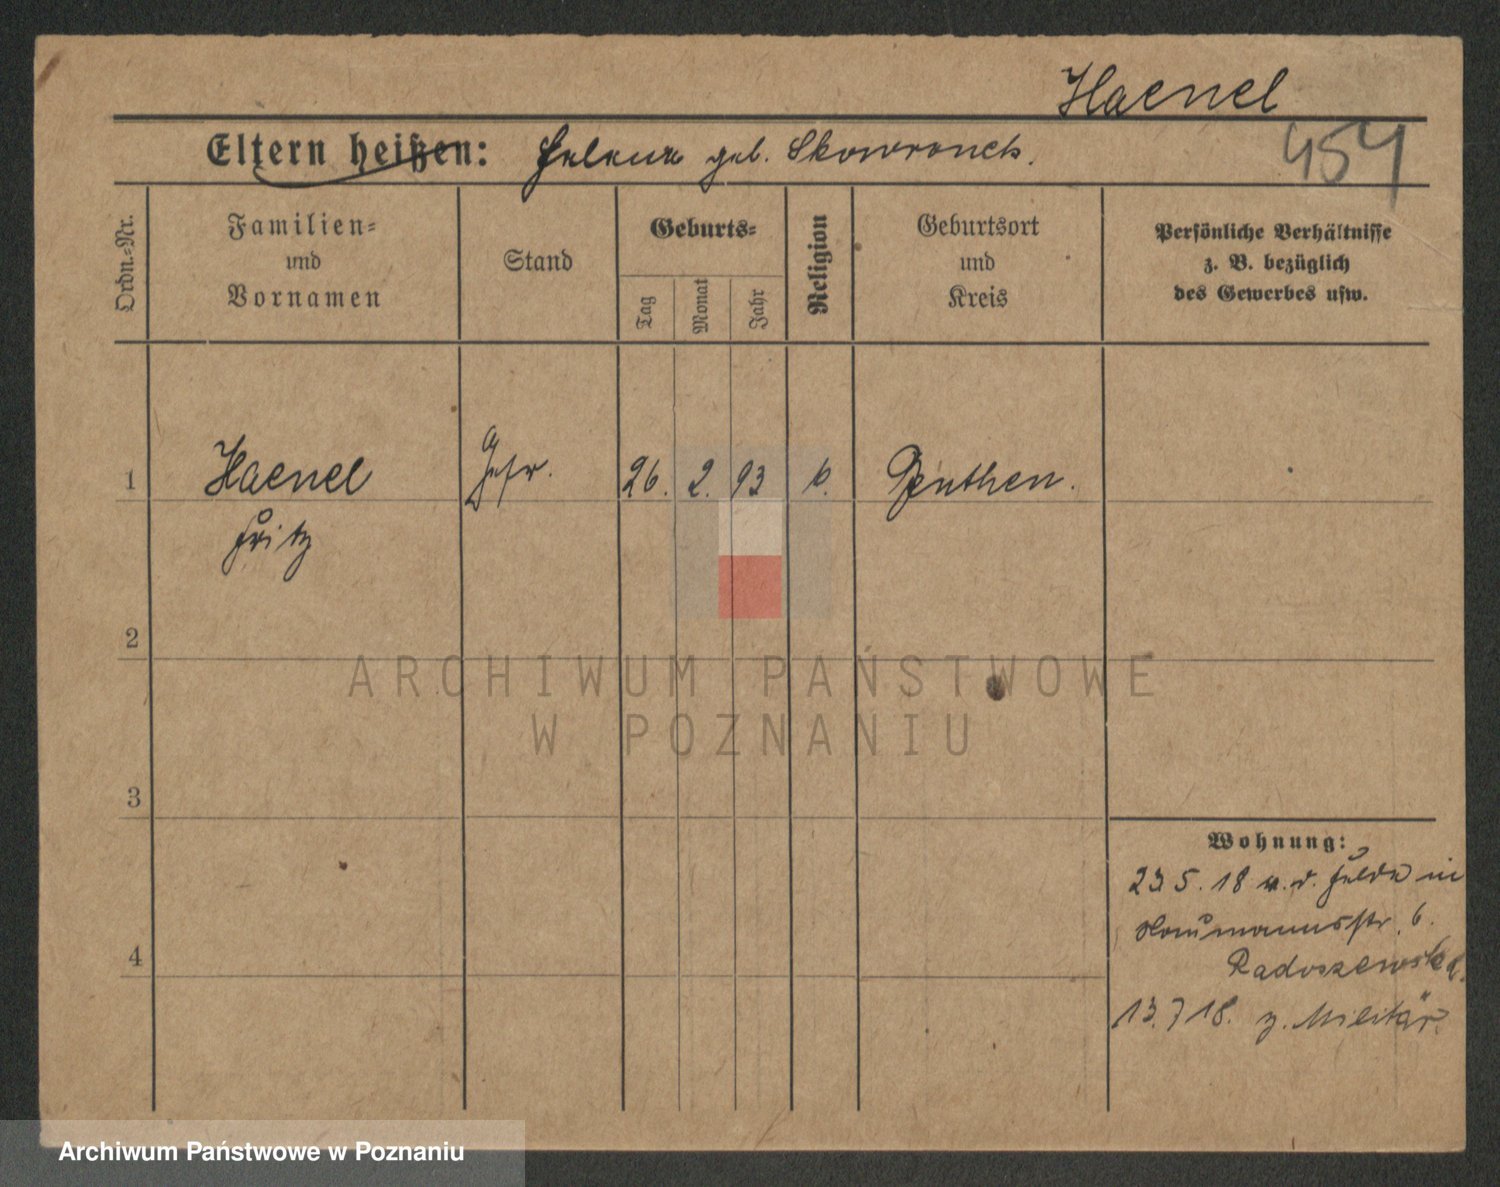 Haenel
454
Eltern heißen: Helene geb. Skowroneck.
Ordn.-Nr.
Familien-
und
Vornamen
Stand
Geburts-
Tag
Monat
Jahr
Religion
Geburtsort
und
Kreis
Persönliche Verhältnisse
z. B. bezüglich
des Gewerbes usw.
1 Haenel Gefr. 26. 2. 93 k. Beuthen.
Fritz
2
3
4
Wohnung:
23 5. 18 a. d. Felde in
Naumannsstr. 6.
Radoszewsk
13. 7 18. z. Militär.
ARCHIWUM PAŃSTWOWE
W POZNANIU
Archiwum Państwowe w Poznaniu